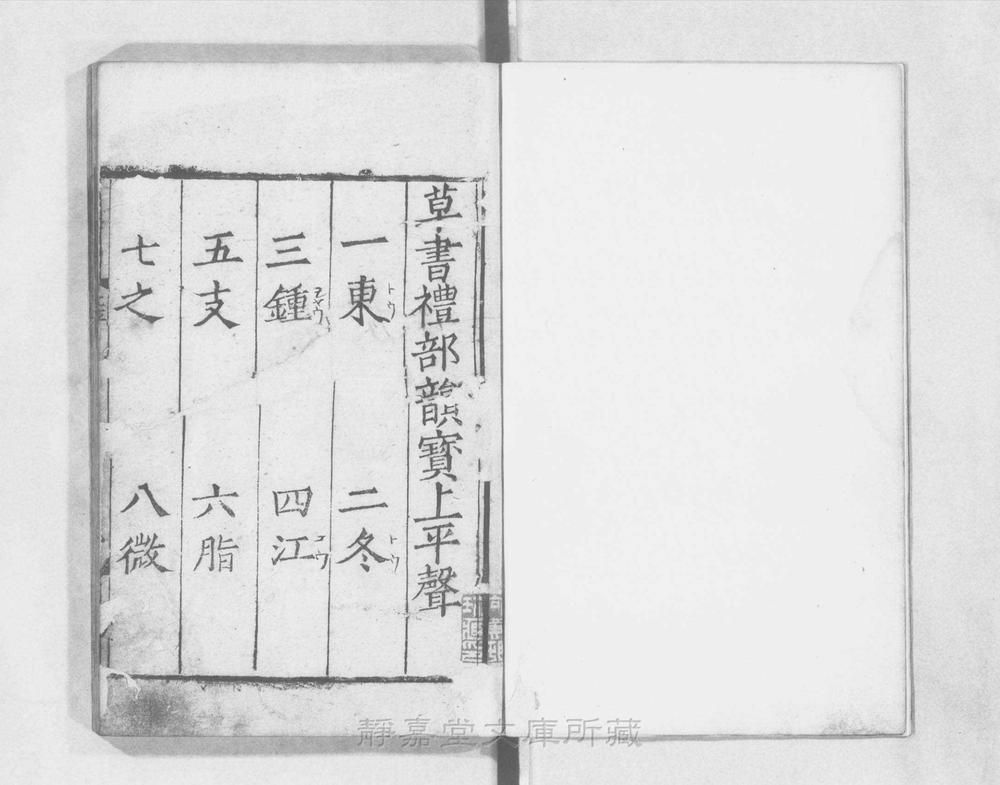 草書禮部韻寶上平聲
一東トウ 二冬トウ
三鍾 四江コウ
五支 六脂
七之 八微
靜嘉堂文庫所藏